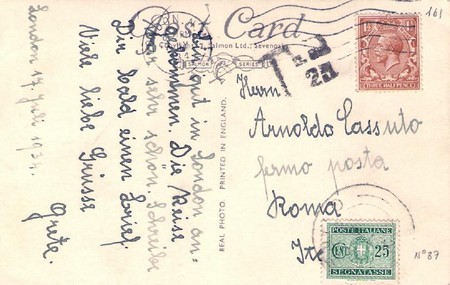 161
Post Card
J. Salmon Ltd., Sevenoaks
SALMON SERIES
THREE HALFPENCE
T. 2
25
Herrn
Arnoldo Cassuto
fermo posta
Roma
REAL PHOTO PRINTED IN ENGLAND.
London 17. Juli 1934
Bin gut in London an-
gekommen. Die Reise
war sehr schön. Schreibe
Dir bald einen Brief.
Viele liebe Grüsse
Grete.
CENT. 25
SEGNATASSE
N° 87